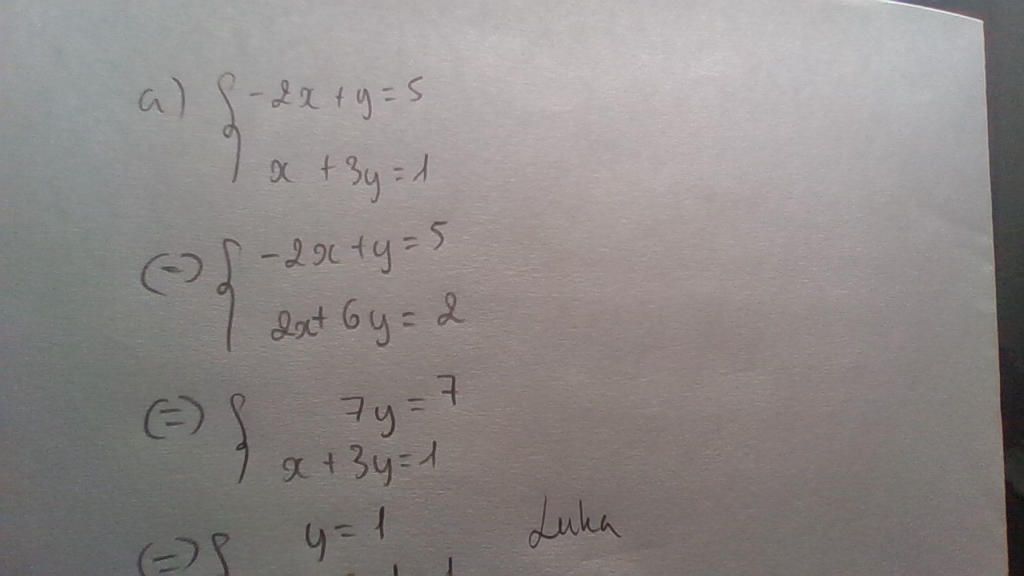 a) { -2x + y = 5
x + 3y = 1
(=) { -2x + y = 5
2x + 6y = 2
(=) { 7y = 7
x + 3y = 1
(=) { y = 1
Luka